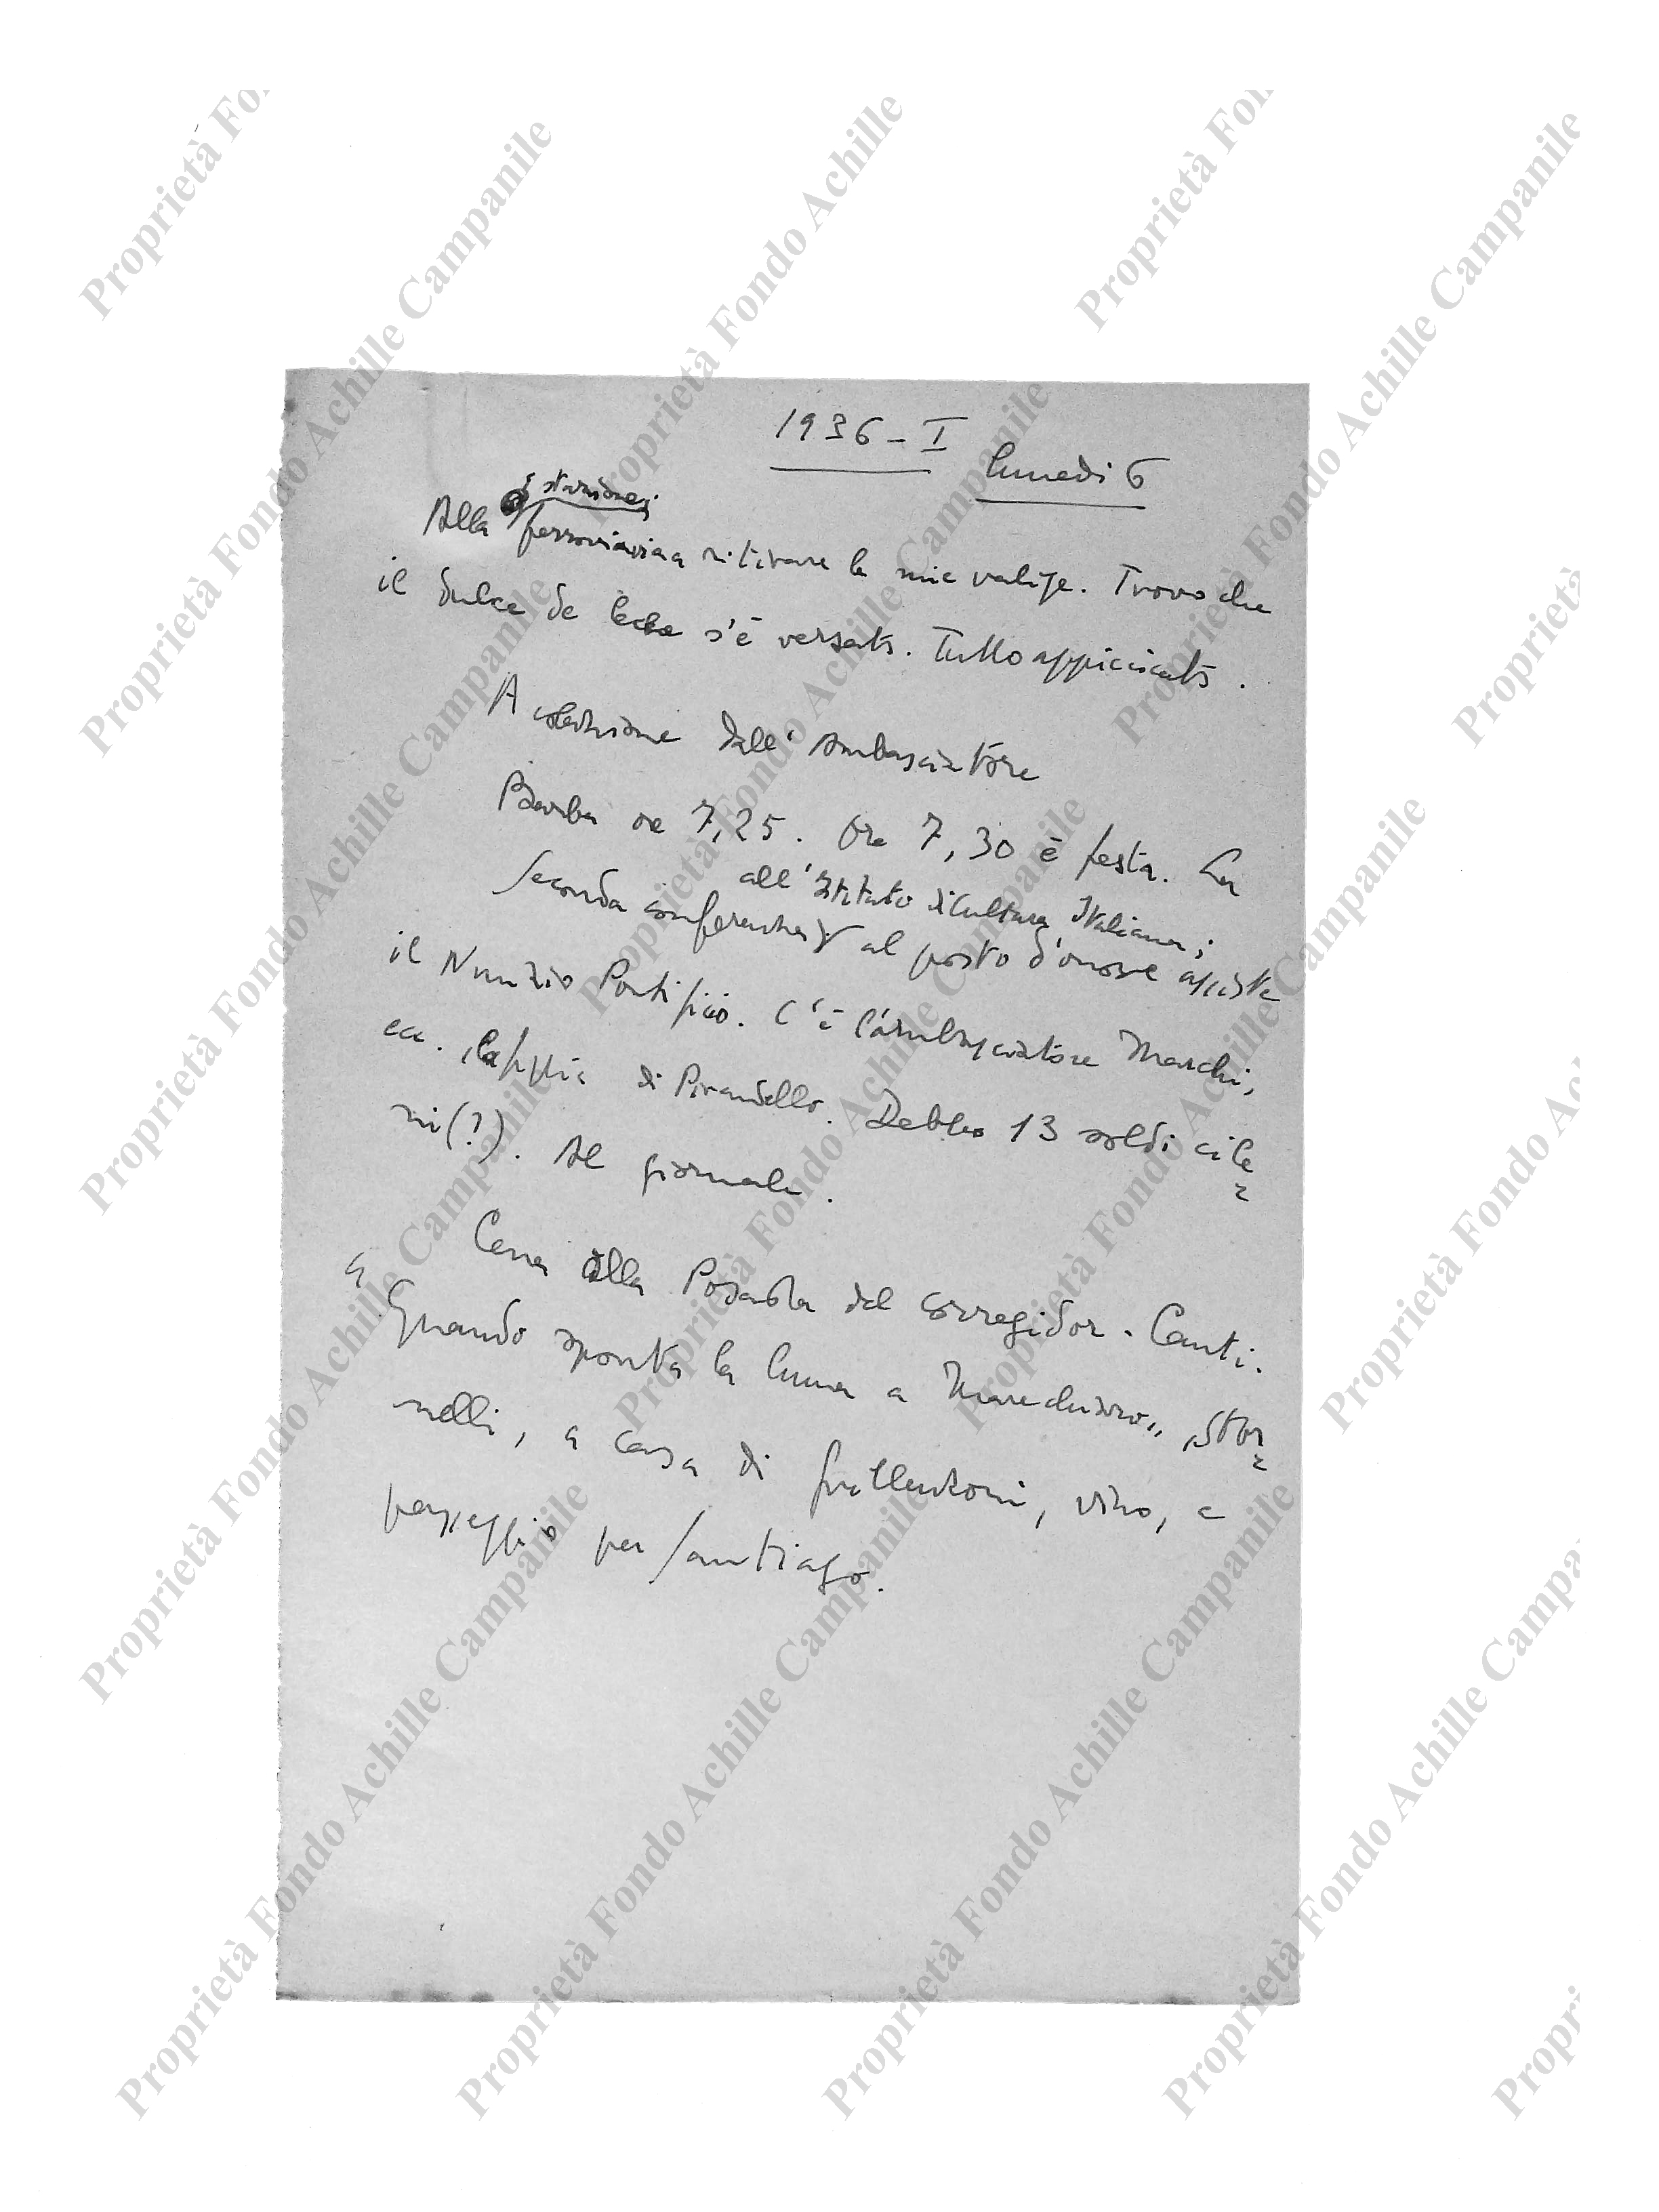 1936 - I
lunedì 6
stazione
Alla ferroviaria a ritirare le mie valige. Trovo che
il dulce de leche s'è versato. Tutto appiccicato.
A colazione dall'Ambasciatore
Barba ore 7,25. Ore 7,30 è festa. La
all'Istituto di Cultura Italiana;
seconda conferenza al posto d'onore assiste
il Nunzio Pontificio. C'è l'ambasciatore Marchi,
ecc. la figlia di Pirandello. Debbo 13 soldi cile=
ni (?). Al giornale.
Cena alla Posada del Corregidor. Canti.
"Quando sponta la luna a Marechiaro", stor=
nelli, a casa di , vino, e
passeggio per Santiago.
Proprietà Fondo Achille Campanile